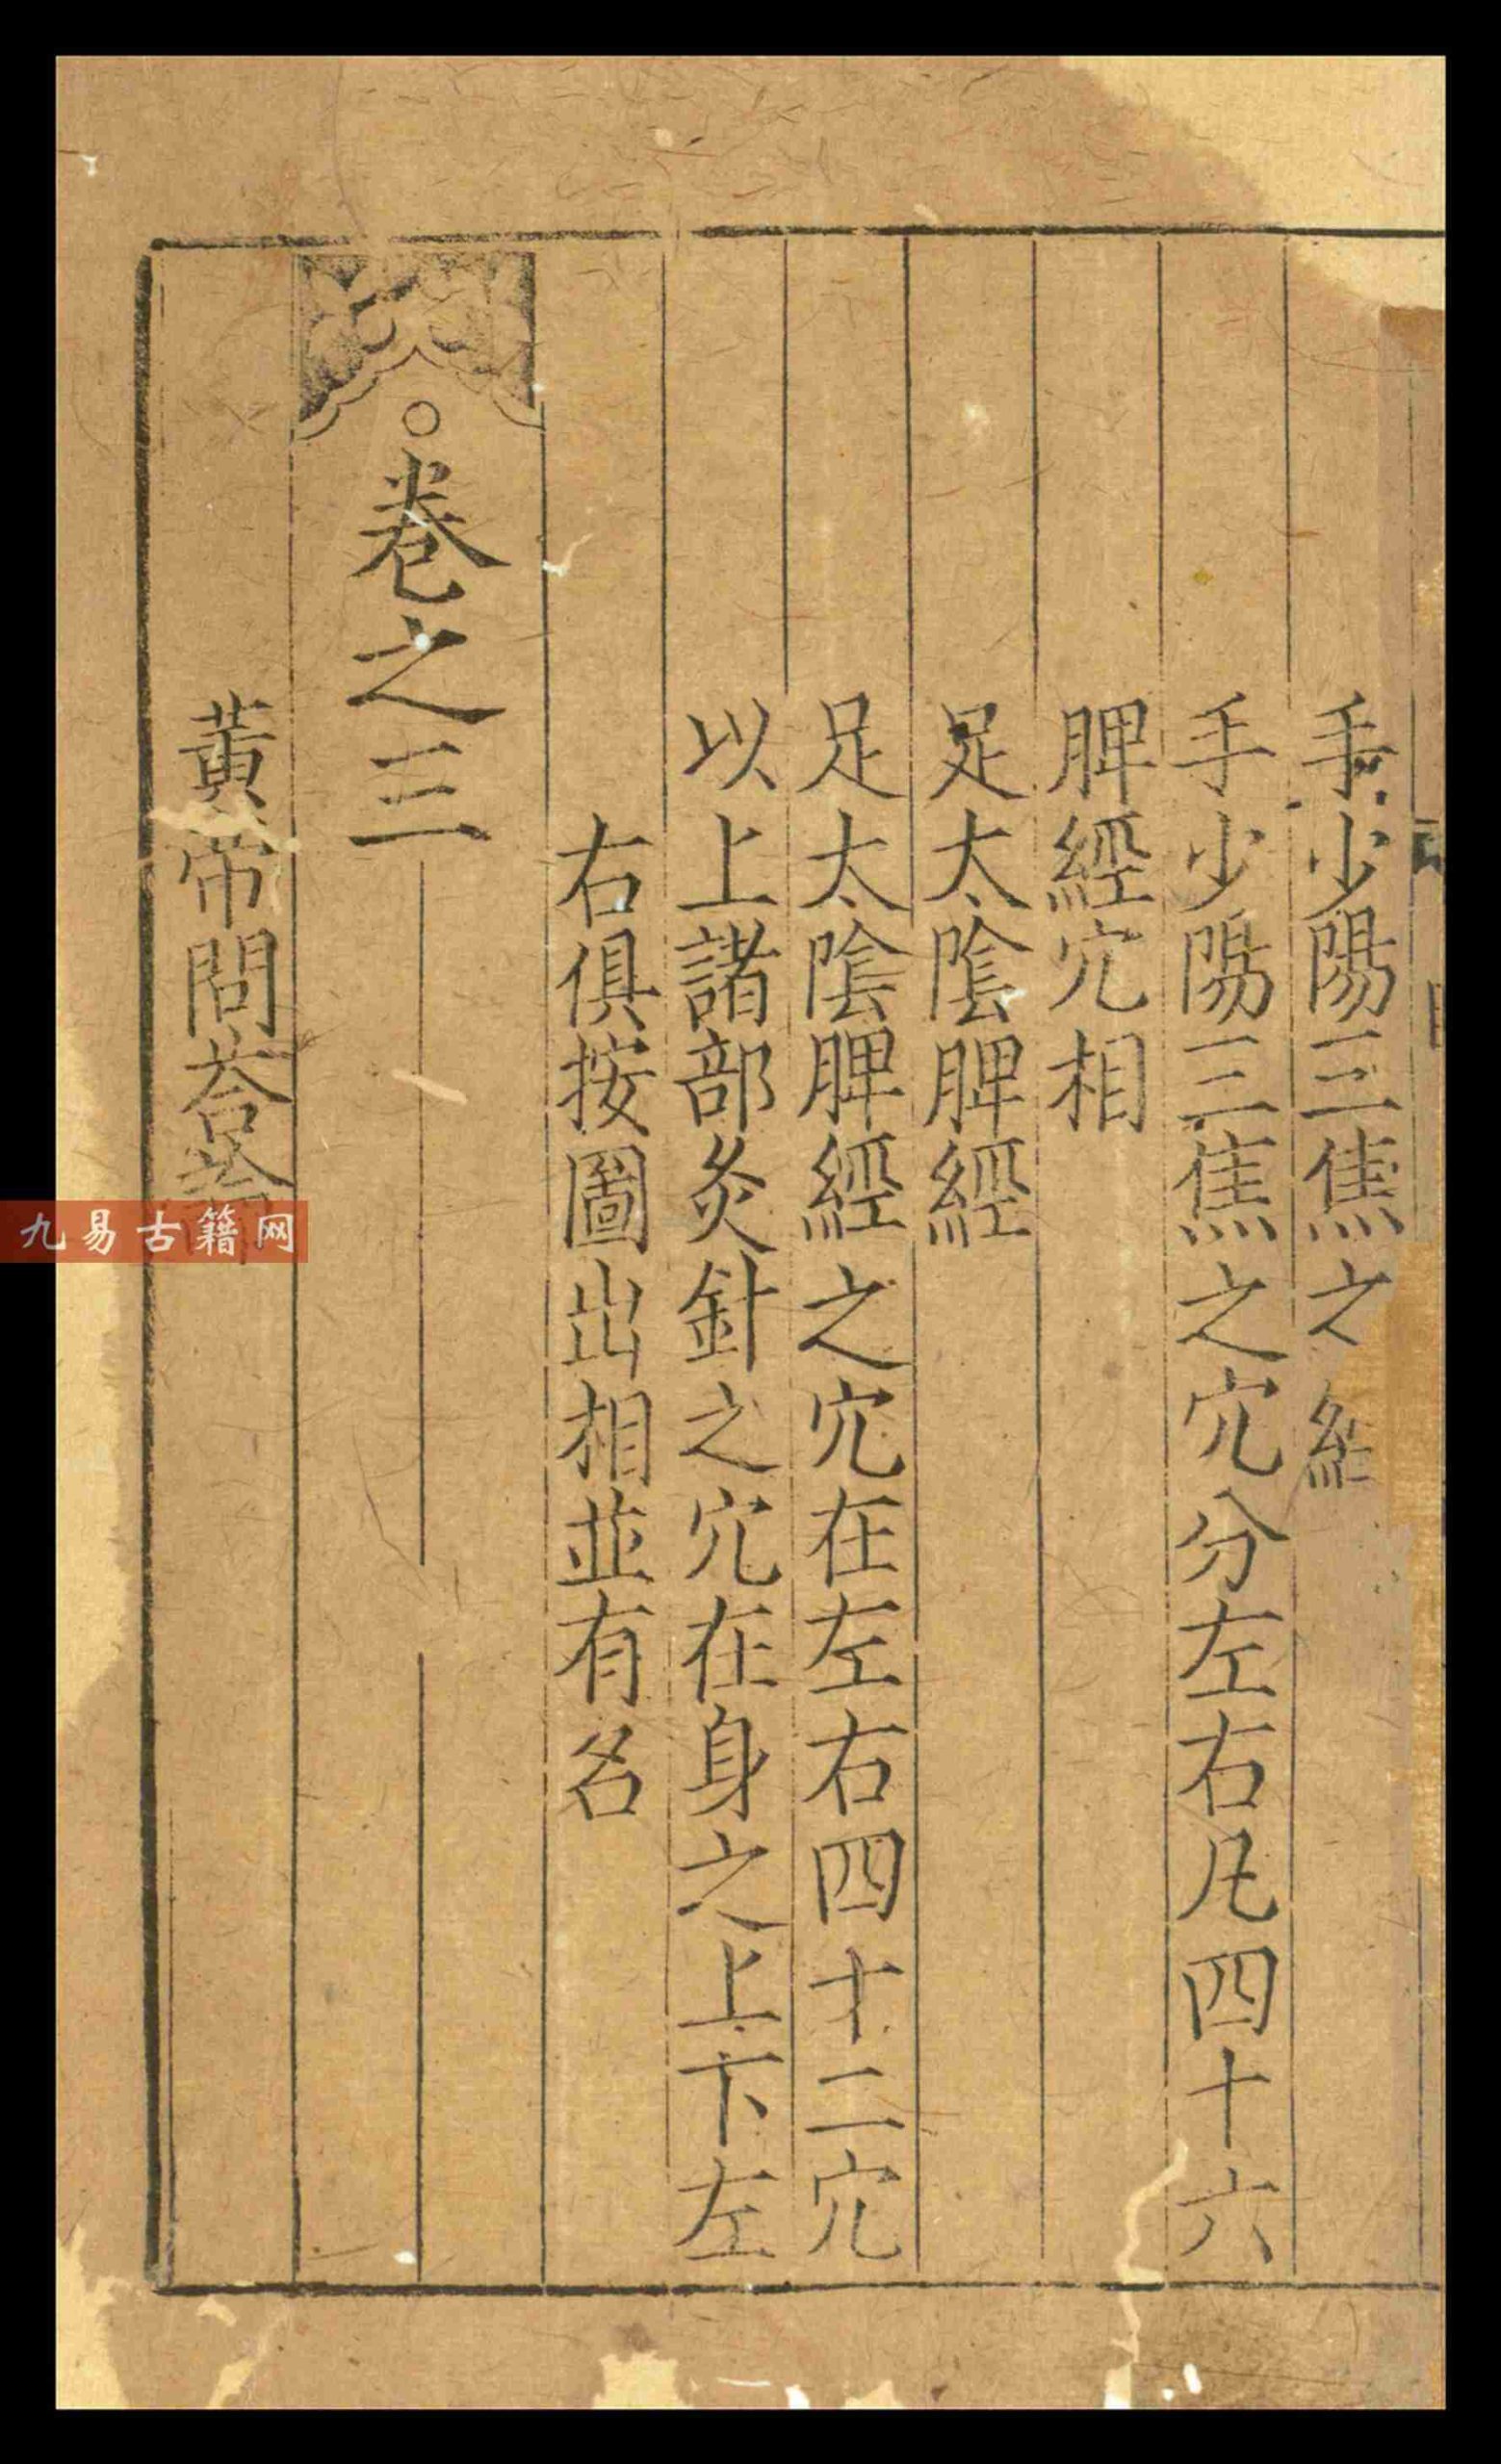 手少陽三焦之經
手少陽三焦之穴分左右凡四十六
脾經穴相
足太陰脾經
足太陰脾經之穴在左右四十二穴
以上諸部灸針之穴在身之上下左
右俱按圖出相並有名
○卷之三
黃帝問荅
九易古籍网